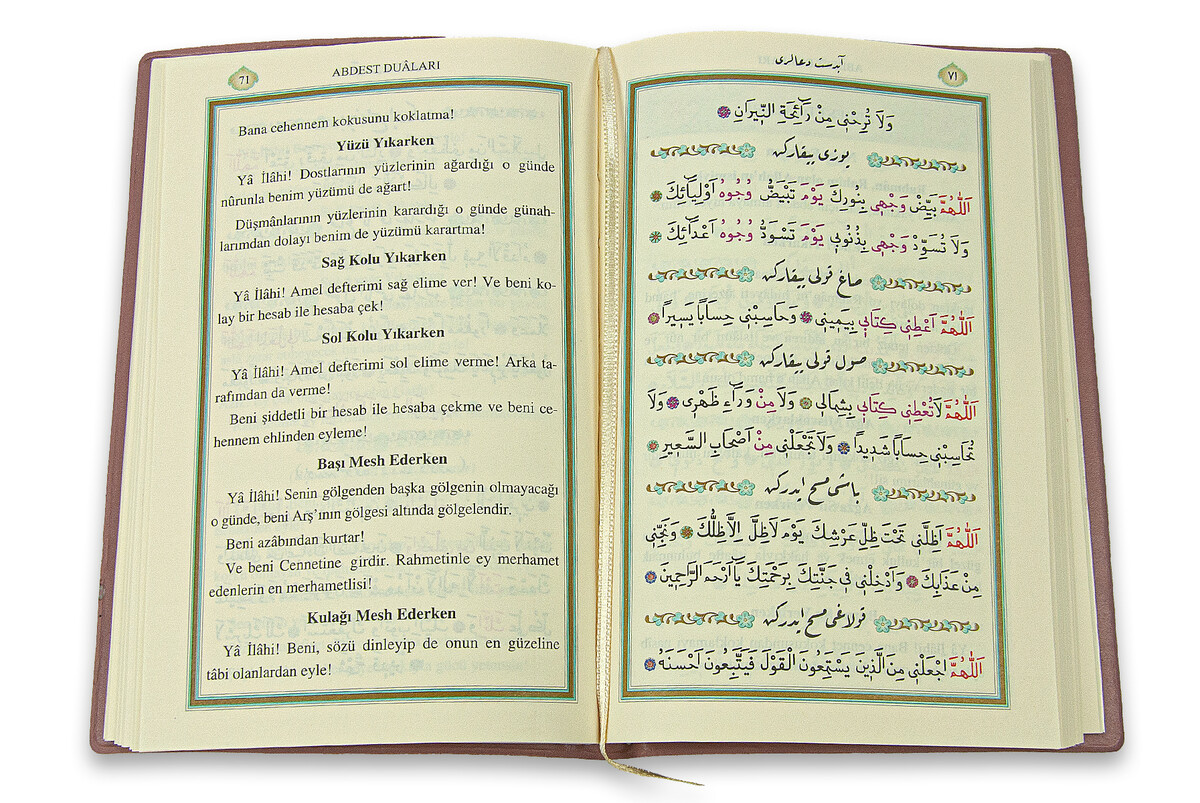 71
ABDEST DUÂLARI
Bana cehennem kokusunu koklatma!
Yüzü Yıkarken
Yâ İlâhi! Dostlarının yüzlerinin ağardığı o günde
nûrunla benim yüzümü de ağart!
Düşmânlarının yüzlerinin karardığı o günde günah-
larımdan dolayı benim de yüzümü karartma!
Sağ Kolu Yıkarken
Yâ İlâhi! Amel defterimi sağ elime ver! Ve beni ko-
lay bir hesab ile hesaba çek!
Sol Kolu Yıkarken
Yâ İlâhi! Amel defterimi sol elime verme! Arka ta-
rafımdan da verme!
Beni şiddetli bir hesab ile hesaba çekme ve beni ce-
hennem ehlinden eyleme!
Başı Mesh Ederken
Yâ İlâhi! Senin gölgenden başka gölgenin olmayacağı
o günde, beni Arş’ının gölgesi altında gölgelendir.
Beni azâbından kurtar!
Ve beni Cennetine girdir. Rahmetinle ey merhamet
edenlerin en merhametlisi!
Kulağı Mesh Ederken
Yâ İlâhi! Beni, sözü dinleyip de onun en güzeline
tâbi olanlardan eyle!
آبدست دعالری
٧١
وَلَا تُرِحْنٖى مِنْ رَٓائِحَةِ النّٖيرَانِ
يوزى ييقاركن
اَللّٰهُمَّ بَيِّضْ وَجْهٖى بِنُورِكَ يَوْمَ تَبْيَضُّ وُجُوهُ اَوْلِيَٓائِكَ
وَلَا تُسَوِّدْ وَجْهٖى بِذُنُوبٖى يَوْمَ تَسْوَدُّ وُجُوهُ اَعْدَٓائِكَ
صاغ قولى ييقاركن
اَللّٰهُمَّ اَعْطِنٖى كِتَابٖى بِيَمٖينٖى وَحَاسِبْنٖى حِسَابًا يَسٖيرًا
صول قولى ييقاركن
اَللّٰهُمَّ لَا تُعْطِنٖى كِتَابٖى بِشِمَالٖى وَلَا مِنْ وَرَٓاءِ ظَهْرٖى وَلَا
تُحَاسِبْنٖى حِسَابًا شَدٖيدًا وَلَا تَجْعَلْنٖى مِنْ اَصْحَابِ السَّعٖيرِ
باشى مسح ايدركن
اَللّٰهُمَّ اَظِلَّنٖى تَحْتَ ظِلِّ عَرْشِكَ يَوْمَ لَا ظِلَّ اِلَّا ظِلُّكَ وَنَجِّنٖى
مِنْ عَذَابِكَ وَاَدْخِلْنٖى فٖى جَنَّتِكَ بِرَحْمَتِكَ يَٓا اَرْحَمَ الرَّاحِمٖينَ
قولاغى مسح ايدركن
اَللّٰهُمَّ اجْعَلْنٖى مِنَ الَّذٖينَ يَسْتَمِعُونَ الْقَوْلَ فَيَتَّبِعُونَ اَحْسَنَهُ